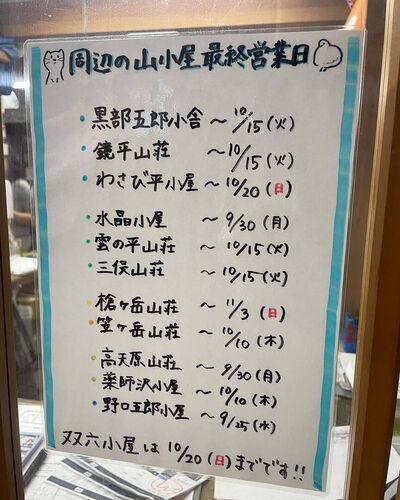 周辺の山小屋最終営業日
・黒部五郎小舎 ～10/15(火)
・鏡平山荘 ～10/15(火)
・わさび平小屋 ～10/20(日)
・水晶小屋 ～9/30(月)
・雲の平山荘 ～10/15(火)
・三俣山荘 ～10/15(火)
・槍ヶ岳山荘 ～11/3(日)
・笠ヶ岳山荘 ～10/10(木)
・高天原山荘 ～9/30(月)
・薬師沢小屋 ～10/10(木)
・野口五郎小屋 ～9/25(水)
双六小屋は10/20(日)までです!!